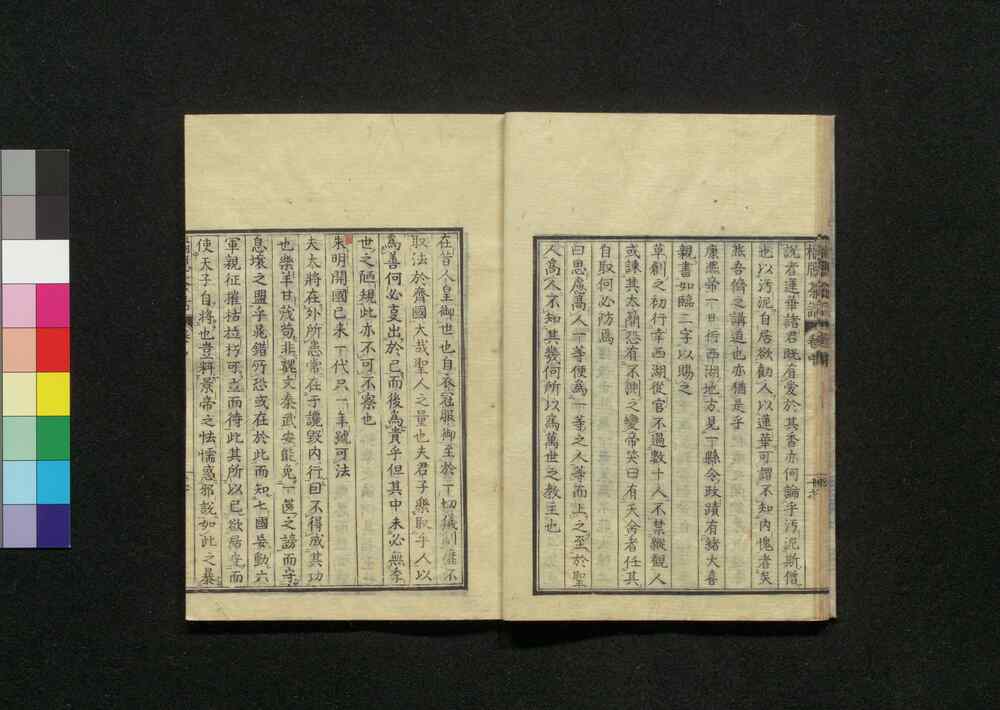 說君蓮華諸君既有愛於其香亦何論乎汚泥斯僧
也以汚泥自居欲勸人以蓮華可謂不知內愧者矣
然吾儕之講道也亦猶是乎
康熙帝一日侍西湖地方見一縣令政蹟有緖大喜
親書如臨二字以賜之
草創之初行幸西湖從官不過數十人不禁縱觀人
或諫其太簡恐有不測之變帝笑曰有天命者任其
自取何必防爲
曰思慮高人一等便爲一等之人等而上之至於聖
人高人不知其幾何所以爲萬世之教主也
在昔人皇御世也自衣冠服御至於一切儀制靡不
取法於齊國大哉聖人之量也夫君子樂取乎人以
爲善何必更出於己而後爲貴乎但其中未必無季
世之陋規此亦不可不察也
朱明開國已來一代只一年號可法
夫大將在外所患常在于讒毀內行因不得成其功
也樂羊甘茂苟非魏文秦武安能免一篋之謗而守
息壤之盟乎晁錯所恐或在於此而知七國妄動六
軍親征摧枯拉朽可立而待此其所以已欲居守而
使天子自將也豈料景帝之怯懦惑邪說如此之暴